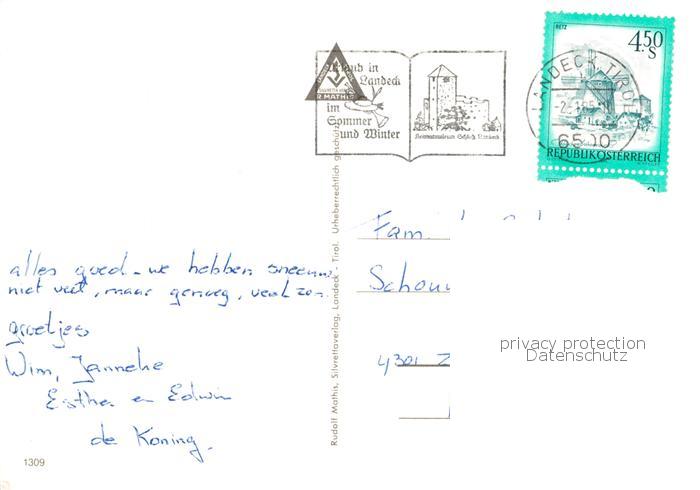 Urlaub in
Landeck
im
Sommer
und Winter
Heimatmuseum Schloß Landeck
R. MATHIS
RETZ
4.50
S
REPUBLIK ÖSTERREICH
LANDECK, TIROL
6500
Rudolf Mathis, Silvrettaverlag, Landeck - Tirol. Urheberrechtlich geschützt
Fam.
4301 Z
privacy protection
Datenschutz
alles goed - we hebben sneeuw
niet veel, maar genoeg, veel zon.
groetjes
Wim, Janneke
Esther en Edwin
de Koning.
1309